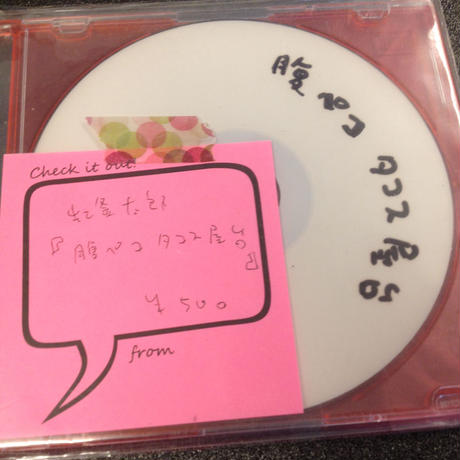 腹ペコ タコス屋台
Check it out!
虹釜太郎
『腹ペコ タコス屋台』
¥500
from